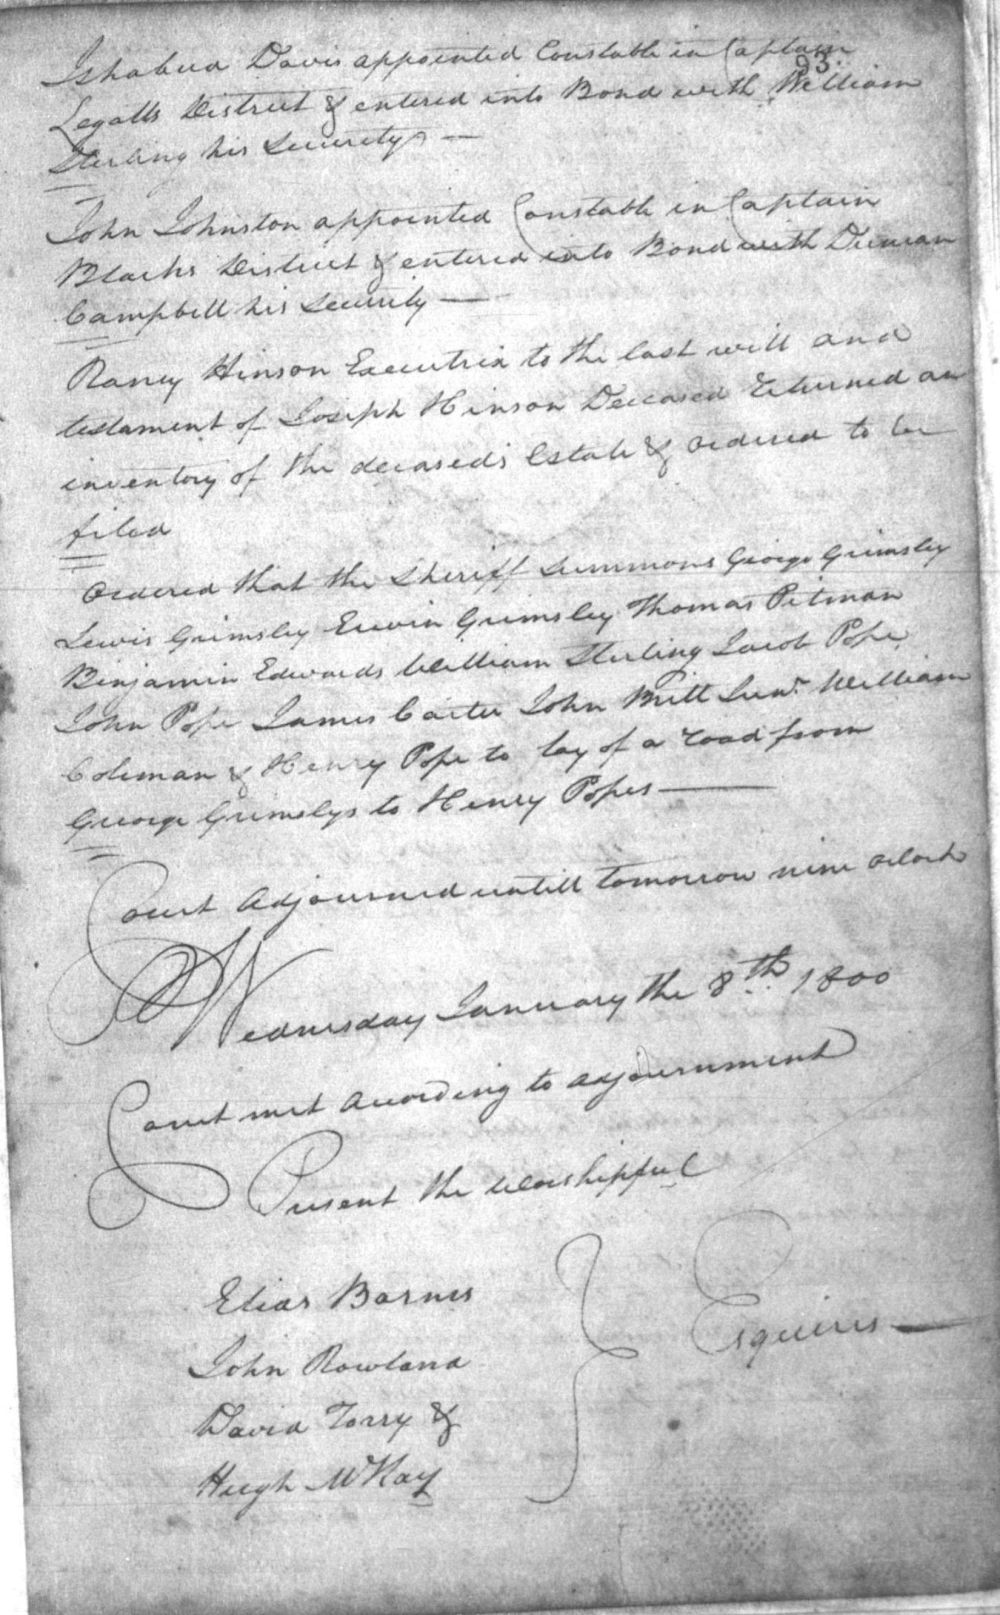 93.
Ishabud Davis appointed Constable in Captain
Legatts District & entered into Bond with William
Sterling his Security —
John Johnston appointed Constable in Captain
Blacks District & entered into Bond with Duncan
Campbell his Security —
Nancy Hinson Executrix to the last will and
testament of Joseph Hinson Deceased Returned an
inventory of the deceased's Estate & ordered to be
filed
Ordered that the Sheriff Summons George Grimsley
Lewis Grimsley Erwin Grimsley Thomas Pitman
Binjamin Edwards William Sterling Jacob Pope
John Pope James Carter John Britt Junr. William
Coleman & Henry Pope to lay of a road from
George Grimslys to Henry Popes —
Court Adjourned untill tomorrow nine oClock
Wednesday January the 8th. 1800
Court met According to adjournment
Present the Worshipful
Elias Barnes
John Rowland
Esquires —
David Torry &
Hugh McKay